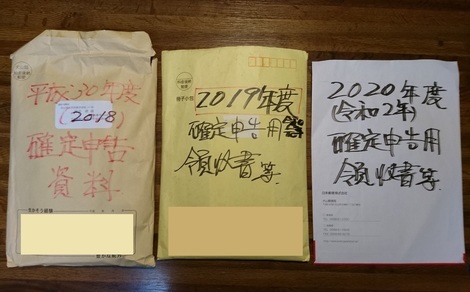 平成30年度
(2018)
確定申告
資料
2019年度
確定申告用
領収書等
2020年度
(令和2年)
確定申告用
領収書等